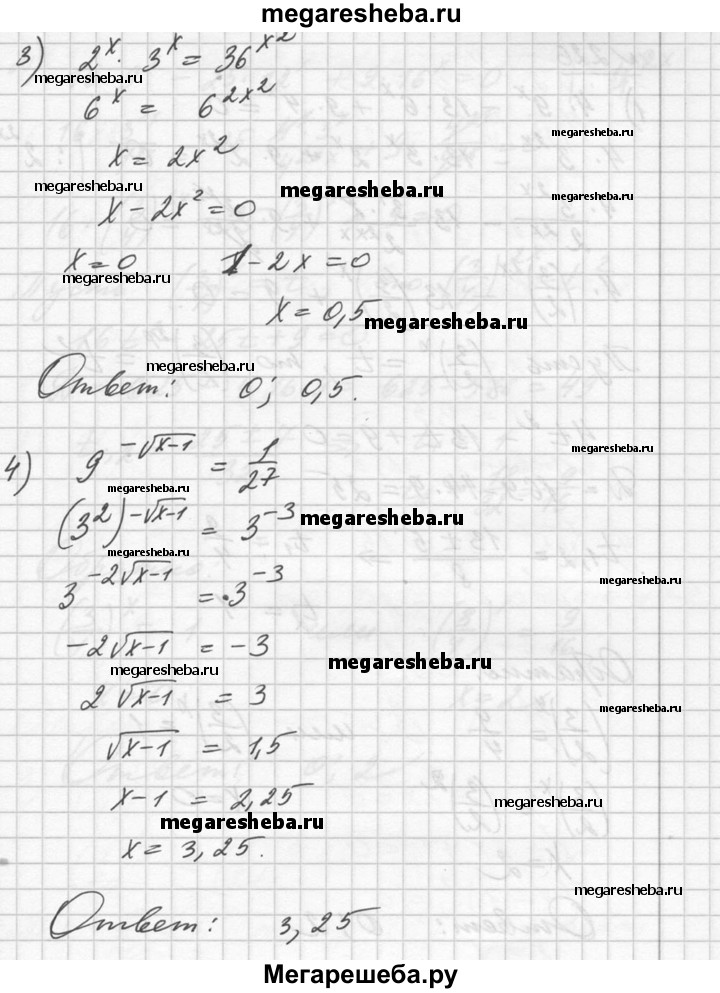 megaresheba.ru
3) 2^x · 3^x = 36^{x^2}
megaresheba.ru
6^x = 6^{2x^2}
megaresheba.ru
x = 2x^2
megaresheba.ru megaresheba.ru megaresheba.ru
x - 2x^2 = 0
x = 0 1 - 2x = 0
megaresheba.ru
x = 0,5
megaresheba.ru
megaresheba.ru
Ответ: 0; 0,5.
megaresheba.ru
4) 9^{-√(x-1)} = 1/27
megaresheba.ru
(3^2)^{-√(x-1)} = 3^{-3}
megaresheba.ru
megaresheba.ru
3^{-2√(x-1)} = 3^{-3}
megaresheba.ru
-2√(x-1) = -3
megaresheba.ru megaresheba.ru
2√(x-1) = 3
megaresheba.ru
√(x-1) = 1,5
x - 1 = 2,25
megaresheba.ru
megaresheba.ru
x = 3,25.
megaresheba.ru
Ответ: 3,25
Мегарешеба.ру